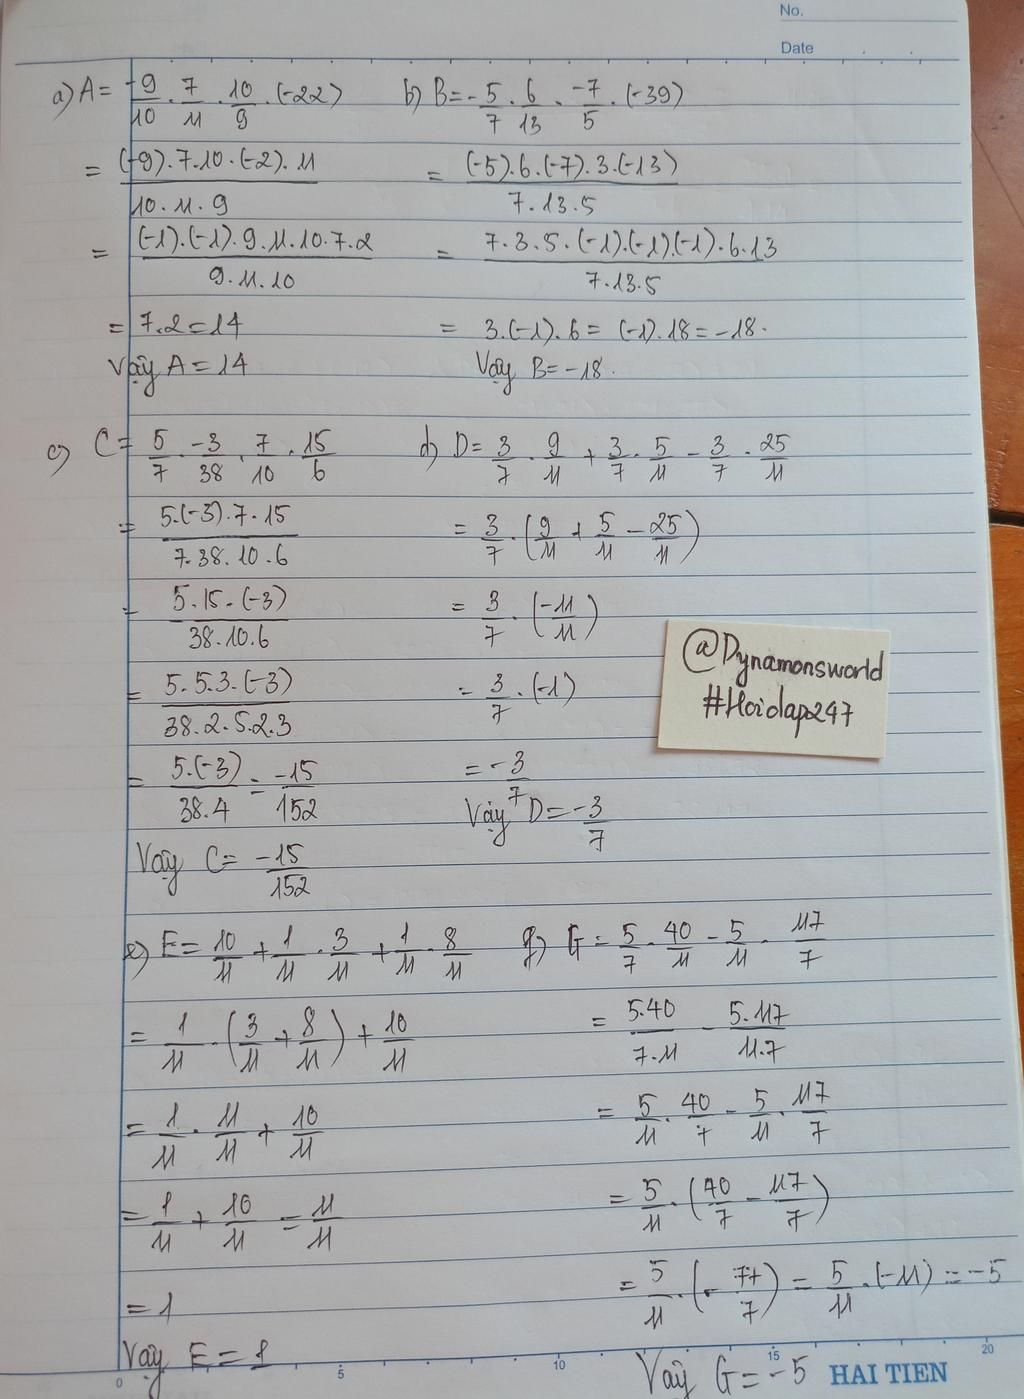 No.
Date
a) A = -9/10 . 7/11 . 10/9 . (-22)
= (-9).7.10.(-2).11 / 10.11.9
= (-1).(-1).9.11.10.7.2 / 9.11.10
= 7.2 = 14
Vậy A = 14
b) B = -5/7 . 6/13 . -7/5 . (-39)
= (-5).6.(-7).3.(-13) / 7.13.5
= 7.3.5.(-1).(-1)(-1).6.13 / 7.13.5
= 3.(-1).6 = (-1).18 = -18.
Vậy B = -18.
c) C = 5/7 . -3/38 . 7/10 . 15/6
= 5.(-3).7.15 / 7.38.10.6
= 5.15.(-3) / 38.10.6
= 5.5.3.(-3) / 38.2.5.2.3
= 5.(-3) / 38.4 = -15/152
Vậy C = -15/152
d) D = 3/7 . 9/11 + 3/7 . 5/11 - 3/7 . 25/11
= 3/7 . (9/11 + 5/11 - 25/11)
= 3/7 . (-11/11)
= 3/7 . (-1)
= -3/7
Vậy D = -3/7
@Dynamonsworld
#Hoidap247
e) E = 10/11 + 1/11 . 3/11 + 1/11 . 8/11
= 1/11 . (3/11 + 8/11) + 10/11
= 1/11 . 11/11 + 10/11
= 1/11 + 10/11 = 11/11
= 1
Vậy E = 1
g) G = 5/7 . 40/11 - 5/11 . 117/7
= 5.40/7.11 - 5.117/11.7
= 5/11 . 40/7 - 5/11 . 117/7
= 5/11 . (40/7 - 117/7)
= 5/11 . (-77/7) = 5/11 . (-11) = -5
Vậy G = -5
0 5 10 15 20
HAI TIEN